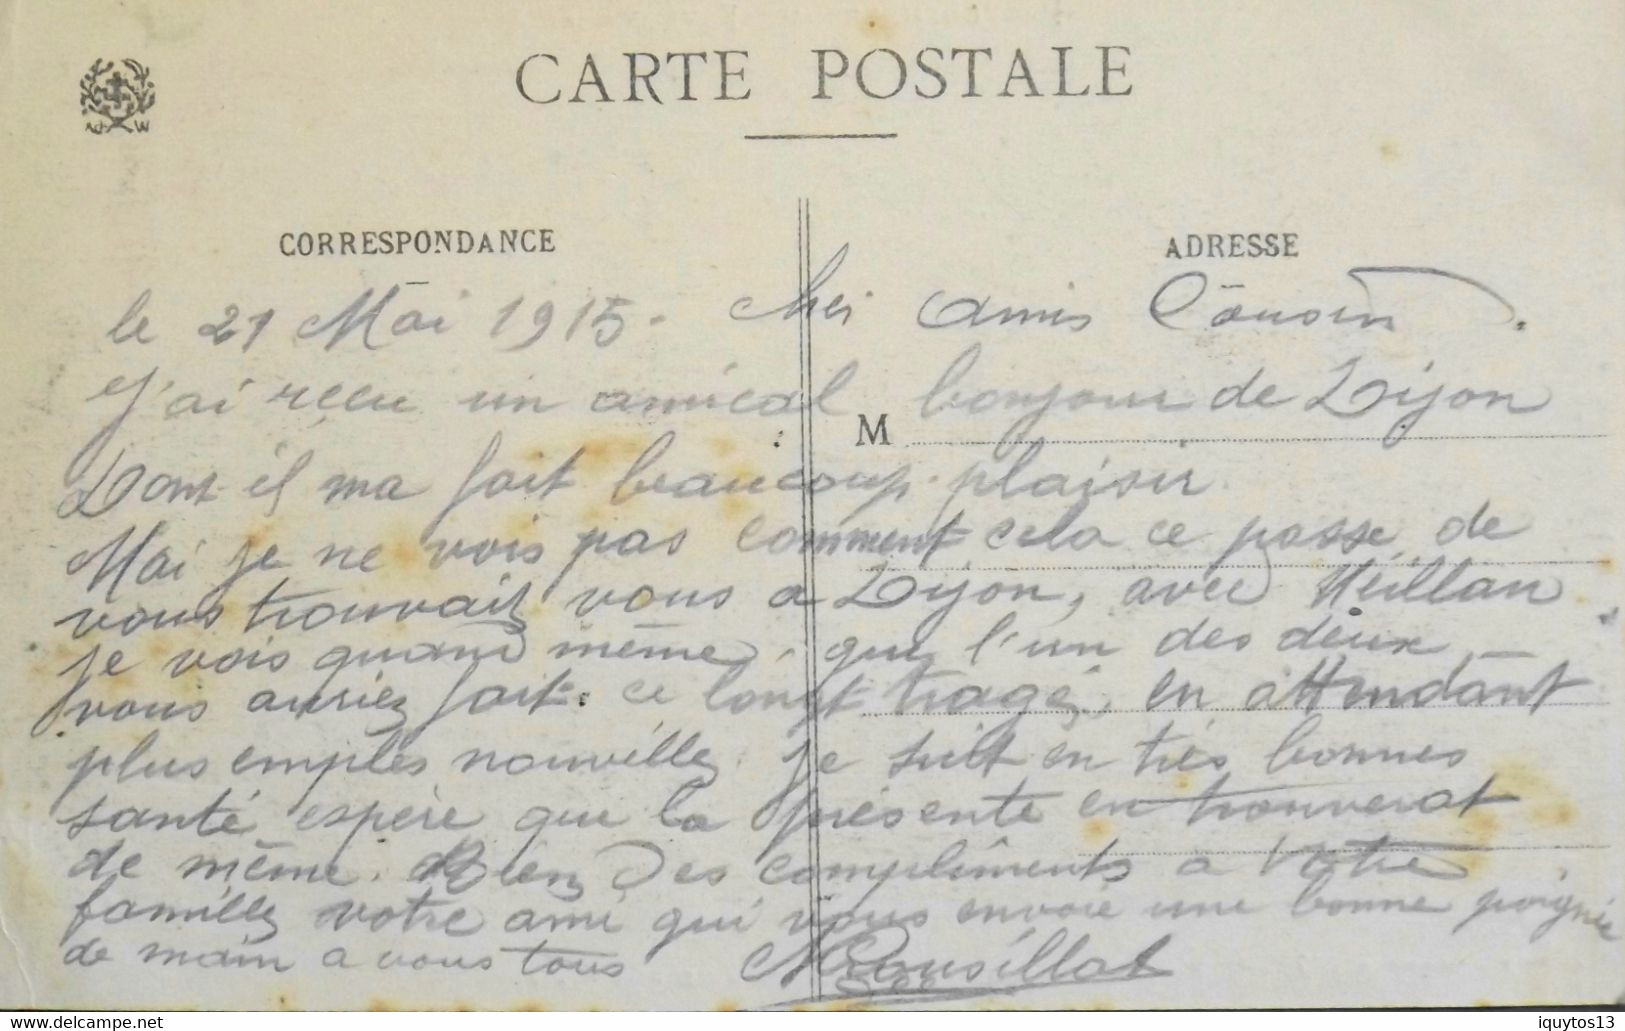 CARTE POSTALE
CORRESPONDANCE
ADRESSE
le 21 Mai 1915. Cher amis Cousin.
J'ai recu un amical bonjour de Dijon
M
Dont il ma fait beaucoup plaisir.
Mai je ne vois pas comment cela ce passe de
vous trouvait vous a Dijon, avec Meillan
je vois quand même, que l'un des deux
vous auriez fait ce longt tragé, en attendant
plus emples nouvelles je suit en très bonnes
santé espère que la présente en trouverat
de même. Bien Des complîments a votre
famille votre ami qui vous envoie une bonne poignie
de main a vous tous Rousillat
iquytos13